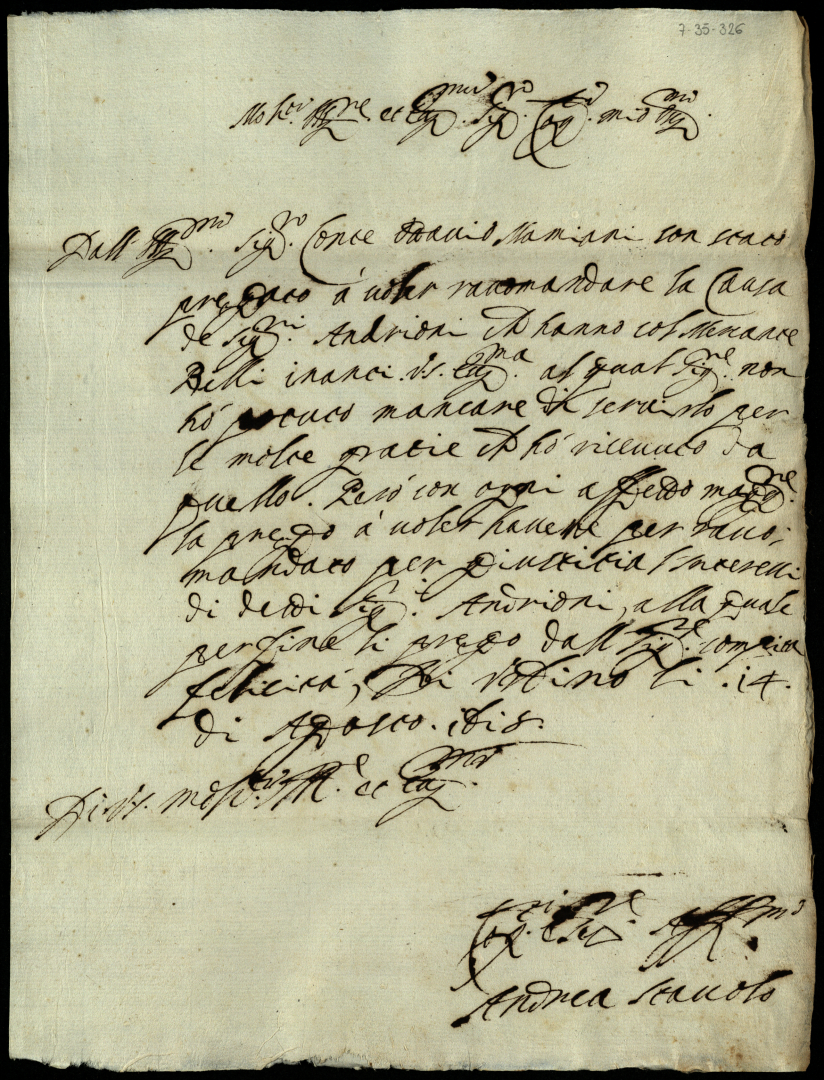 7-35-326
Molt. Ill.re et Ecc.mo Sig.ro mio
Dall Ill.mo Sig.ro Conte Ottavio Mamiani son stato
pregato à voler racomandare la Causa
de Sig.ri Andrioni ch hanno col Mercante
Belli inanci V.S. Ecc.ma al qual Sig.re non
hó potuto mancare di servirlo per
le molte gratie ch hó ricevuto da
quello. Peró con ogni affetto mag.re
la prego á voler havere per raco,
mandato per giustitia l'interessi
di detti Sig.i Andrioni, alla quale
per fine li prego dall Sig.re compita
felicitá, Di Urbino li .14.
di Agosto. 1618.
Di V.S. molt. Ill.e et Ecc.mo
Ser.re Aff.mo
Andrea Stavolo